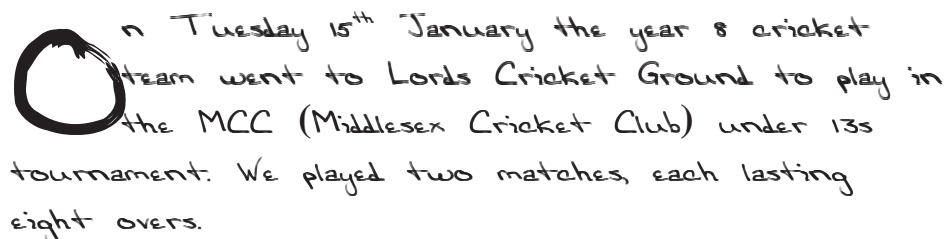 On Tuesday 15th January the year 8 cricket
team went to Lords Cricket Ground to play in
the MCC (Middlesex Cricket Club) under 13s
tournament. We played two matches, each lasting
eight overs.